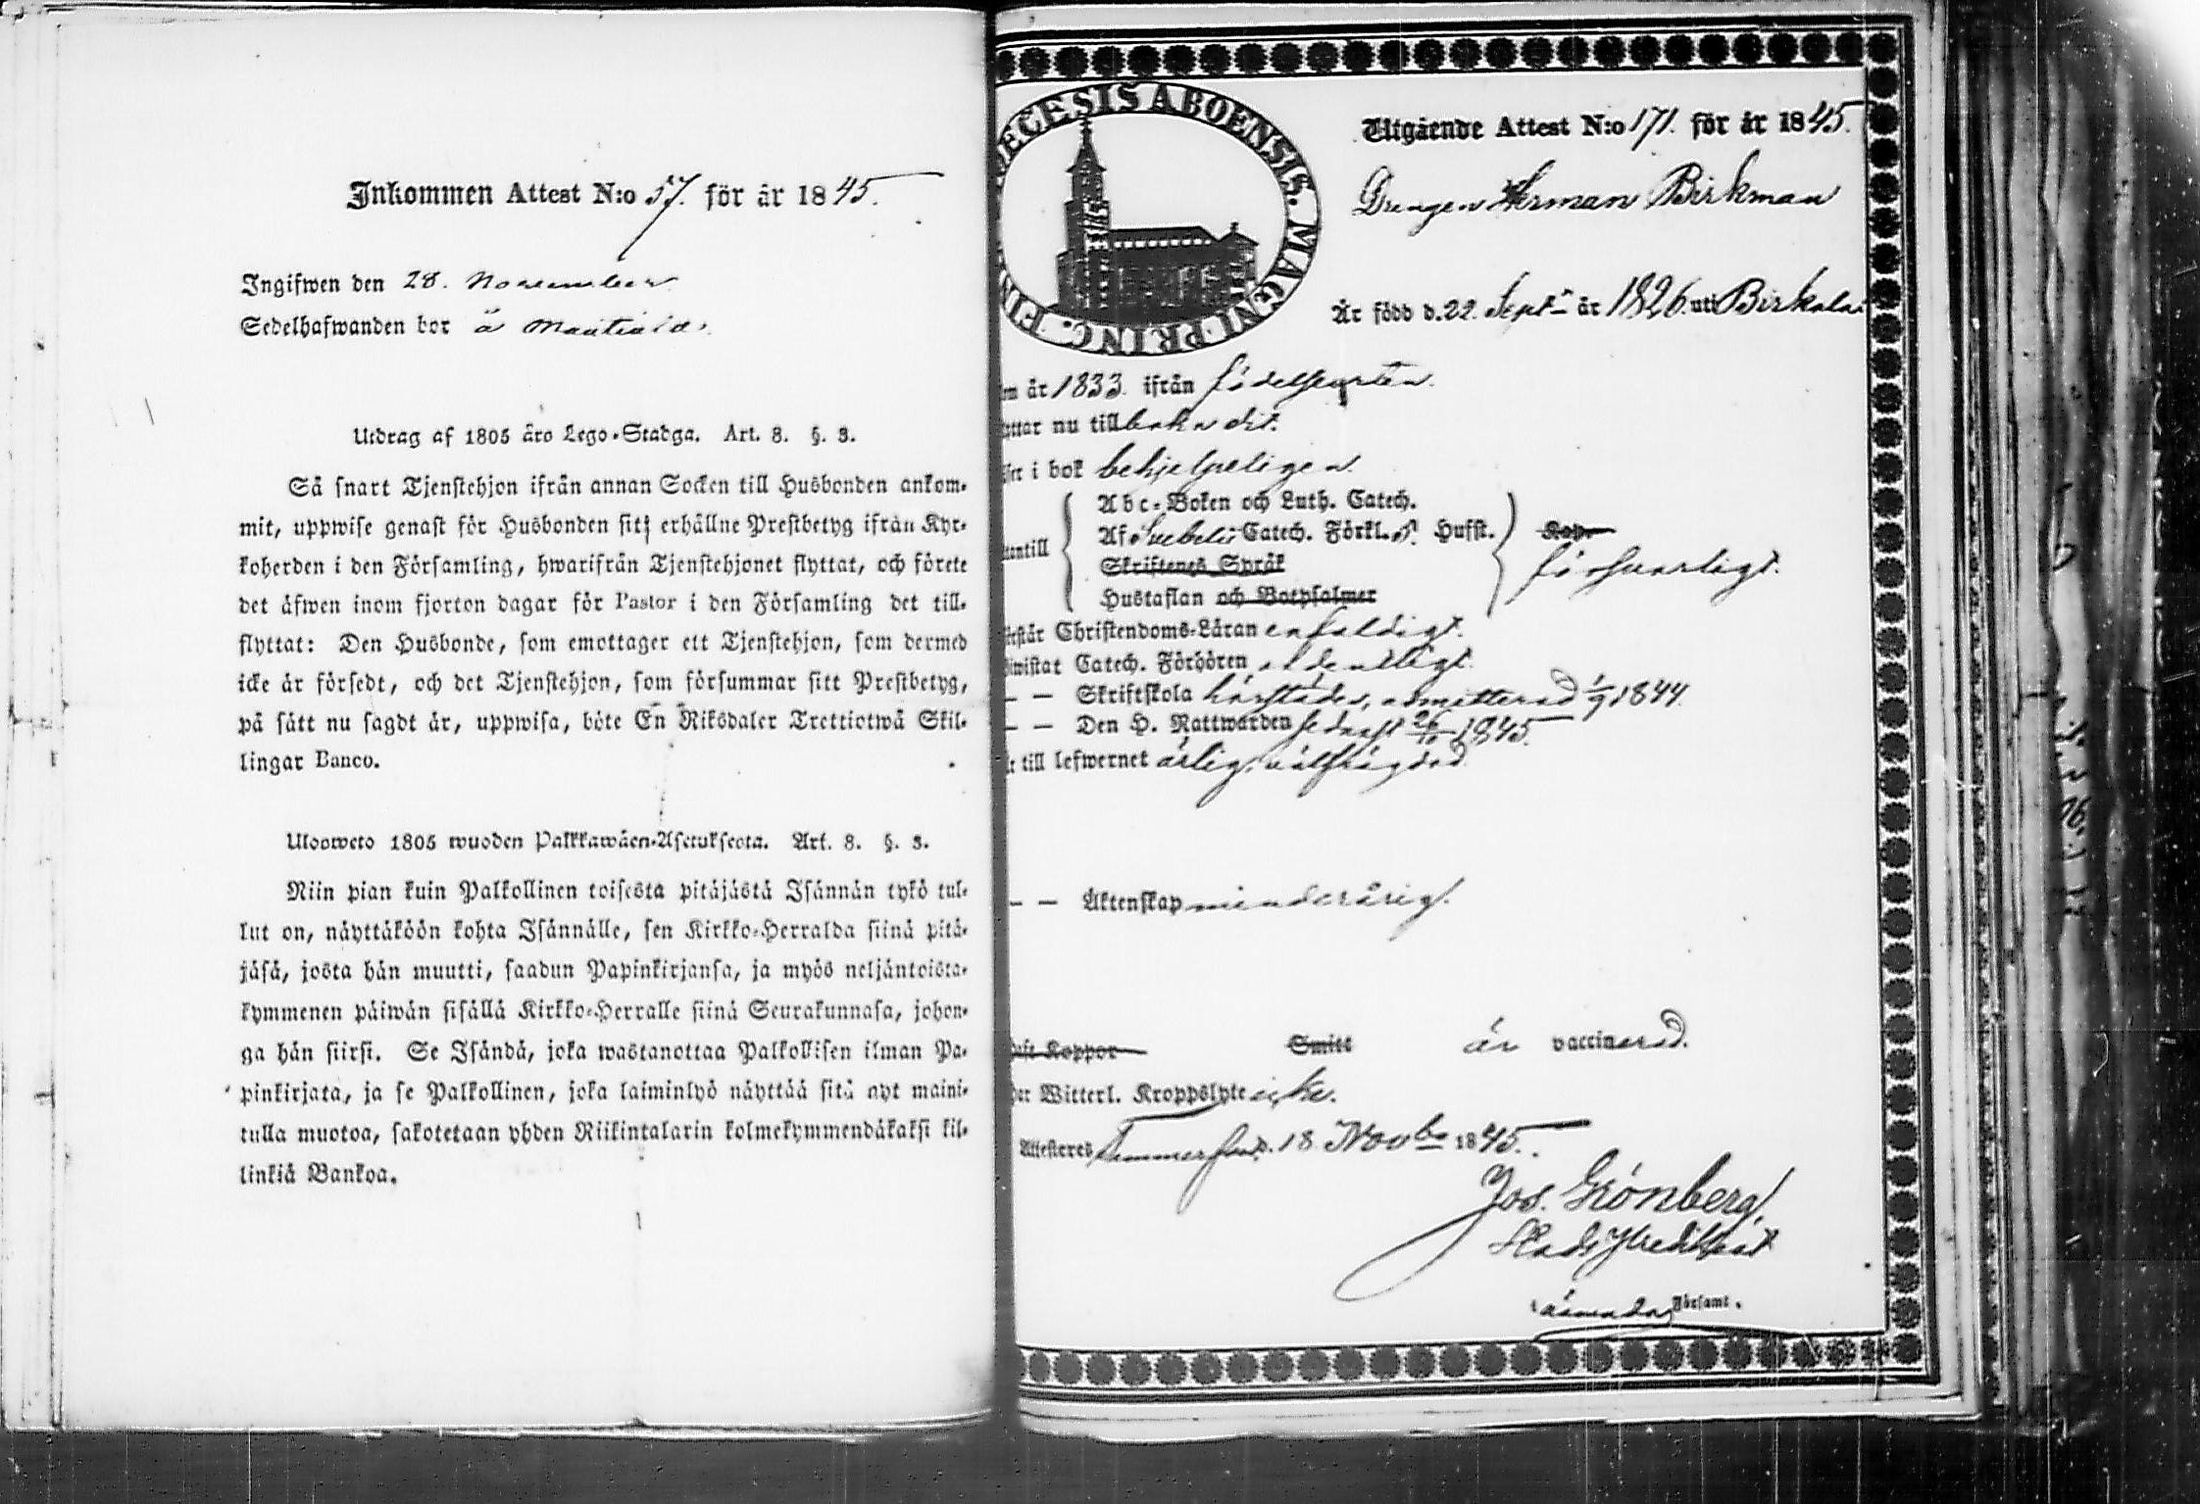 Inkommen Attest N:o 57. för år 1845.
Ingifwen den 28. November
Sedelhafwanden bor å
Utdrag af 1805 års Lego-Stadga. Art. 8. §. 3.
Så snart Tjenstehjon ifrån annan Socken till Husbonden ankom-
mit, uppwise genast för Husbonden sitt erhållne Prestbetyg ifrån Kyr-
koherden i den Församling, hwarifrån Tjenstehjonet flyttat, och förete
det äfwen inom fjorton dagar för Pastor i den Församling det till-
flyttat: Den Husbonde, som emottager ett Tjenstehjon, som dermed
icke är försedt, och det Tjenstehjon, som försummar sitt Prestbetyg,
på sätt nu sagdt är, uppwisa, böte En Riksdaler Trettiotwå Skil-
lingar Banco.
Ulosweto 1805 wuoden Palkkawäen-Asetuksesta. Art. 8. §. 3.
Niin pian kuin Palkollinen toisesta pitäjästä Isännän tykö tul-
lut on, näyttäköön kohta Isännälle, sen Kirkko-Herralda siinä pitä-
jäsä, josta hän muutti, saadun Papinkirjansa, ja myös neljäntoista-
kymmenen päiwän sisällä Kirkko-Herralle siinä Seurakunnasa, johon-
ga hän siirsi. Se Isändä, joka wastanottaa Palkollisen ilman Pa-
pinkirjata, ja se Palkollinen, joka laiminlyö näyttää sitä nyt maini-
tulla muotoa, sakotetaan yhden Riikintalarin kolmekymmendäkaksi kil-
linkiä Bankoa.
ECESIS ABOENSIS. MAGNI PRINC. FIN
Utgående Attest N:o 171. för år 1845.
Drengen Herman Birkman
Är född d. 22. Sept. år 1826. uti Birkala
år 1833. ifrån födelseorten.
ttar nu tillbaka dit.
i bok behjelpeligen.
Abc-Boken och Luth. Catech.
Af Svebelii Catech. Förkl. 5. Hufst.
Skriftenes Språk
Hustaflan och Botpsalmer
Kap.
försvarligt.
står Christendoms-Läran enfaldigt.
wistat Catech. Förhören ordentligt.
— — Skriftskola härstädes, admitterad 1/9 1844.
— — Den H. Nattwarden sednast 26/10 1845.
till lefwernet ärlig, välfrägdad
— — Äktenskap minderårig.
Koppor Smitt är vaccinerad.
Witterl. Kroppslyte icke.
Attesteras Tammerfors d. 18 Novbr 1845.
Jos. Grönberg.
Stads Predikant
Församl.